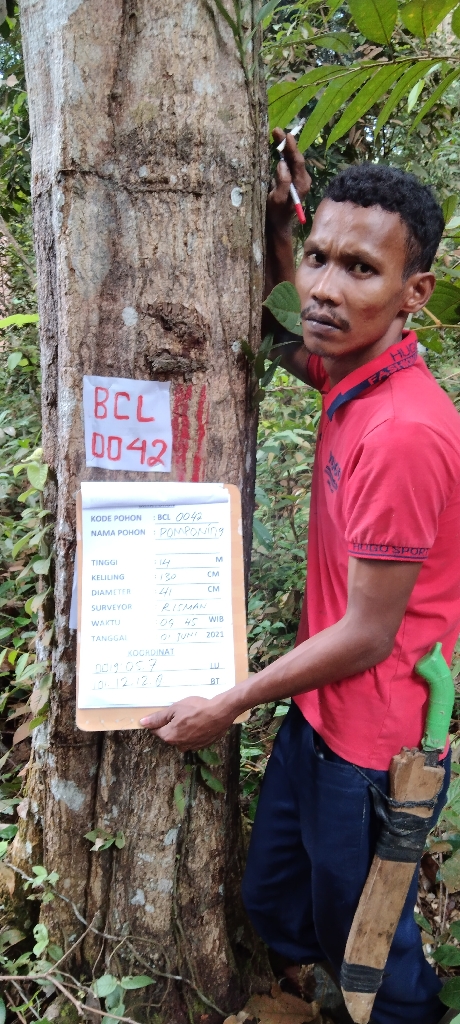 BCL
0042
KODE POHON : BCL 0042
NAMA POHON : POMPONIGG
TINGGI 14 M
KELILING 130 CM
DIAMETER 41 CM
SURVEYOR RISMAN
WAKTU 09 45 WIB
TANGGAL 01 JUNI 2021
KOORDINAT
LU
BT
HUGO SPORT